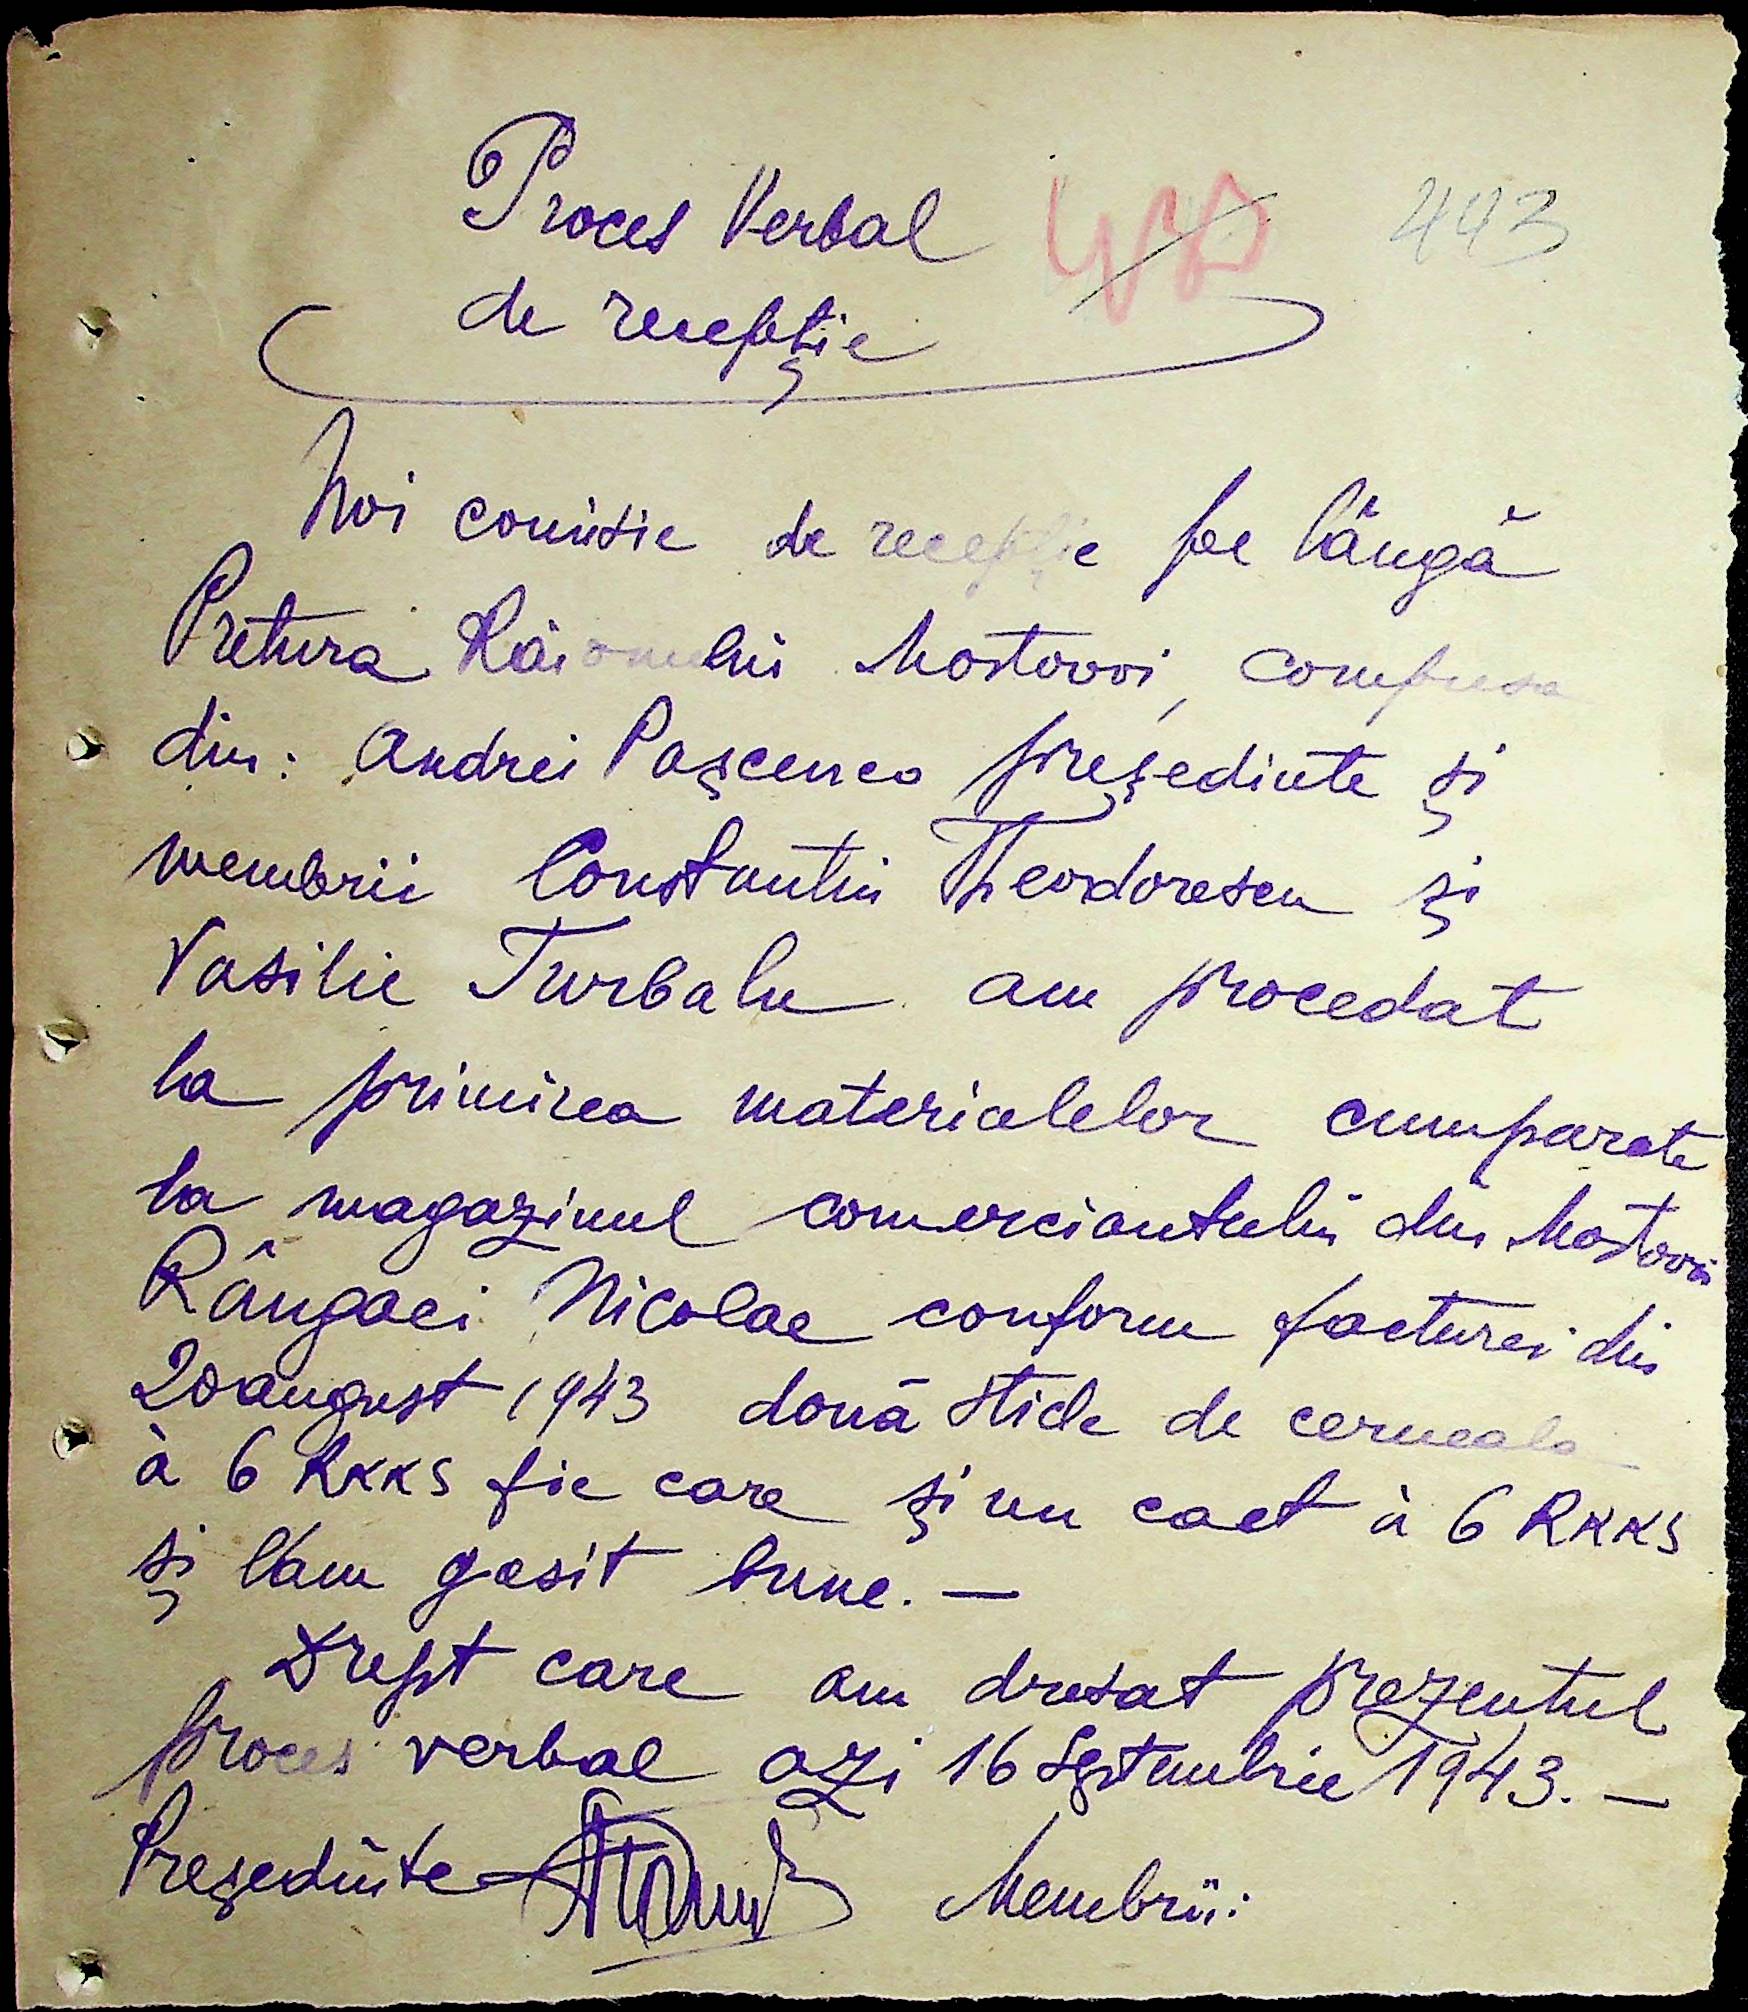 Proces Verbal
443
de recepție
Noi comisie de recepție pe lângă
Pretura Raionului Mostovoi, compusa
din: Andrei Pașcenco președinte și
membrii Constantin Theodorescu și
Vasilie Turbalu am procedat
la primirea materialelor cumparate
la magazinul comerciantului din Mostovoi
Rângaci Nicolae conform facturei din
20 august 1943 două sticle de cerneala
à 6 RKKS fie care și un caet à 6 RKKS
și l'am gasit bune. —
Drept care am dresat prezentul
proces verbal azi 16 Septembrie 1943. —
Președinte Membrii: